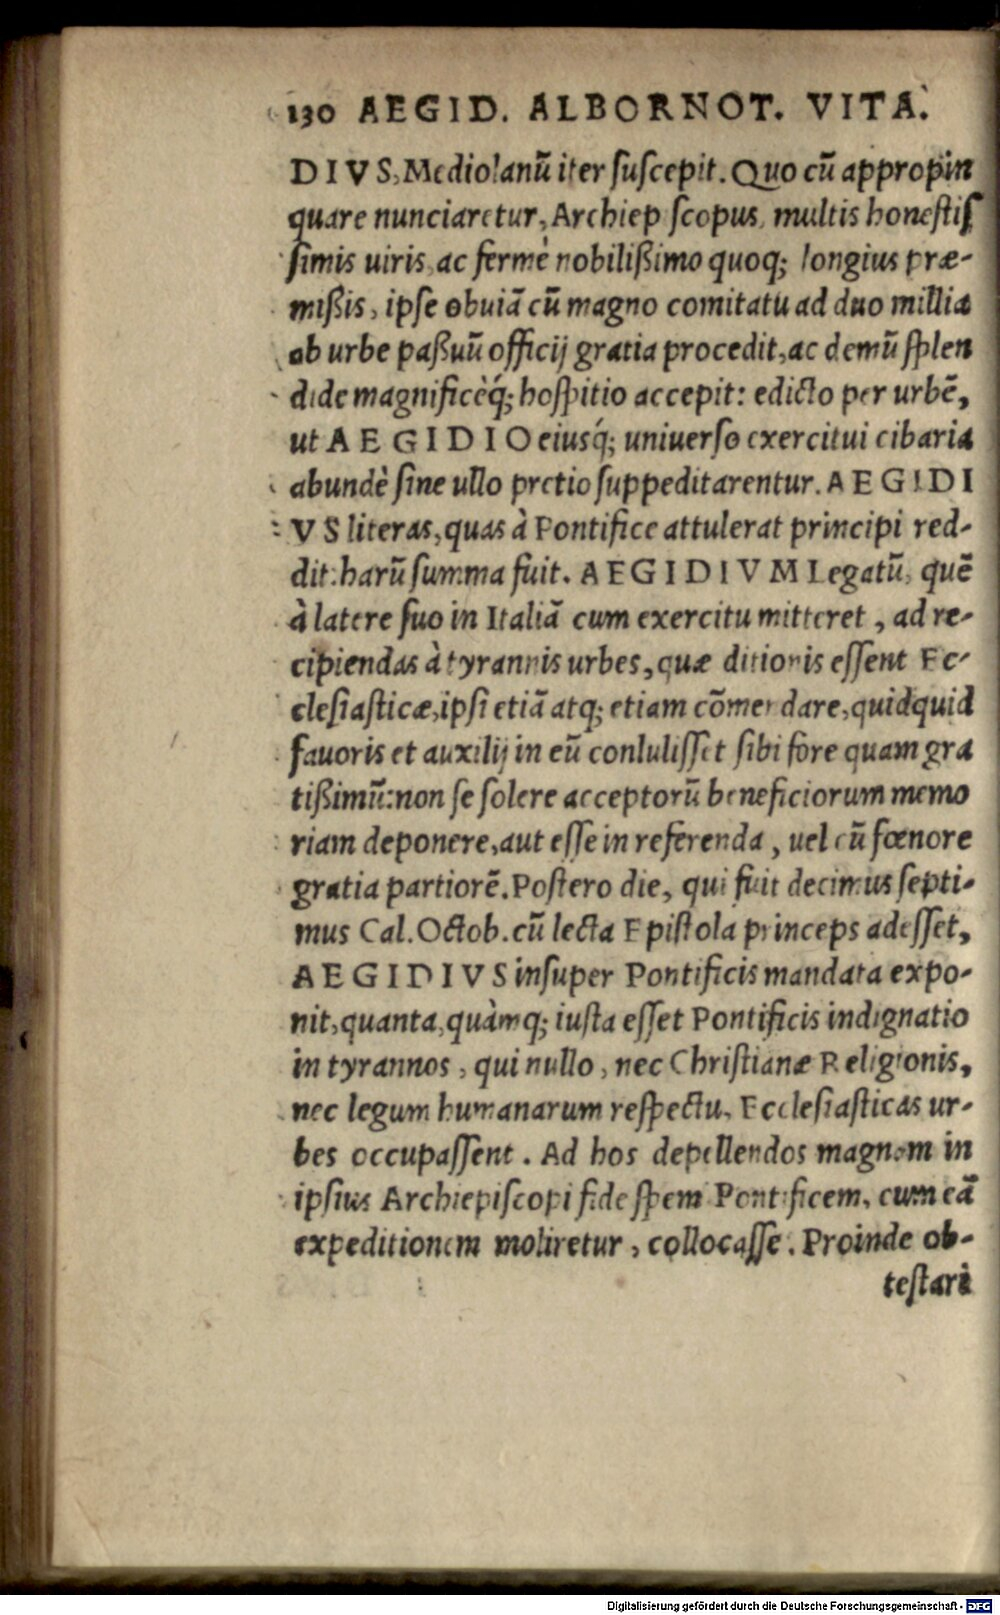 130 AEGID. ALBORNOT. VITA.
DIVS, Mediolanũ iter ſuſcepit. Quo cũ appropin
quare nunciaretur, Archiepiſcopus, multis honeſtiſ
ſimis uiris, ac fermè nobilißimo quoq; longius præ-
mißis, ipſe obuiã cũ magno comitatu ad duo millia
ab urbe paßuũ officij gratia procedit, ac demũ ſplen
dide magnificèq́; hoſpitio accepit: edicto per urbẽ,
ut AEGIDIO eiusq́; uniuerſo exercitui cibaria
abundè ſine ullo pretio ſuppeditarentur. AEGIDI
VS literas, quas à Pontifice attulerat principi red-
dit: harũ ſumma fuit. AEGIDIVM Legatũ, quẽ
à latere ſuo in Italiã cum exercitu mitteret, ad re-
cipiendas à tyrannis urbes, quæ ditionis eſſent Ec-
cleſiaſticæ, ipſi etiã atq; etiam cõmendare, quidquid
fauoris et auxilij in eũ conluliſſet ſibi fore quam gra
tißimũ: non ſe ſolere acceptorũ beneficiorum memo
riam deponere, aut eſſe in referenda, uel cũ fœnore
gratia partiorẽ. Poſtero die, qui fuit decimus ſepti-
mus Cal. Octob. cũ lecta Epiſtola princeps adeſſet,
AEGIDIVS inſuper Pontificis mandata expo-
nit, quanta, quàmq; iuſta eſſet Pontificis indignatio
in tyrannos, qui nullo, nec Chriſtianæ Religionis,
nec legum humanarum reſpectu, Eccleſiaſticas ur-
bes occupaſſent. Ad hos depellendos magnam in
ipſius Archiepiſcopi fide ſpem Pontificem, cum eã
expeditionem moliretur, collocaſſe. Proinde ob-
teſtari
Digitalisierung gefördert durch die Deutsche Forschungsgemeinschaft - DFG